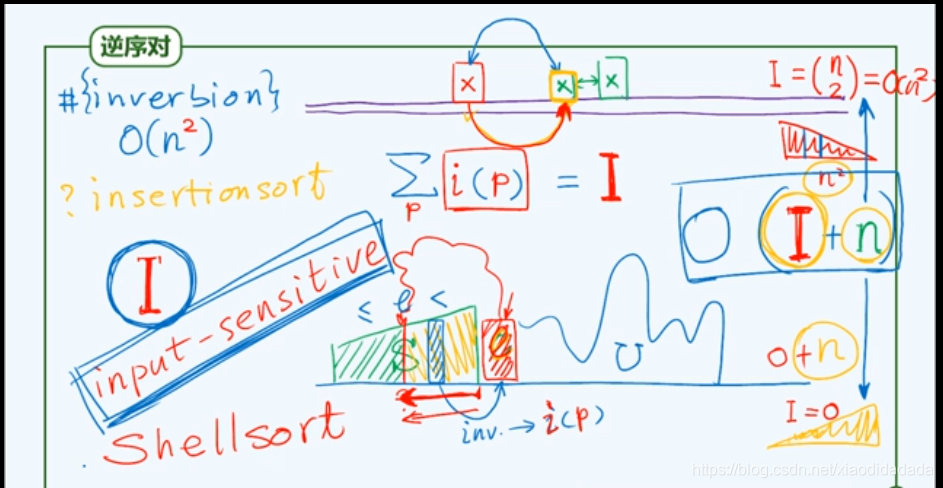 逆序对
#{inversion}
O(n²)
? insertionsort
I
input-sensitive
Shellsort
x x ↔ x
∑ i(p) = I
p
I = (n 2) = O(n²)
n²
O(I + n)
< e <
S e U
inv. → i(p)
0 + n
I = 0
https://blog.csdn.net/xiaodidadada